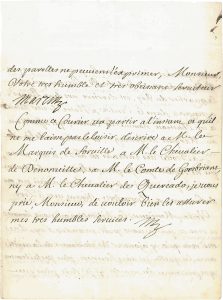 des paroles ne peuvent l'exprimer, Monsieur
Votre tres humble et tres obeissant serviteur
Comme ce Courier va partir a l'instant et qu'il
ne me laisse pas le loisir d'ecrire a M. le
Marquis de a M. le Chevalier
de a M. le Comte de
ny a M. le Chevalier de je vous
prie, Monsieur, de vouloir bien les assurer
mes tres humbles services